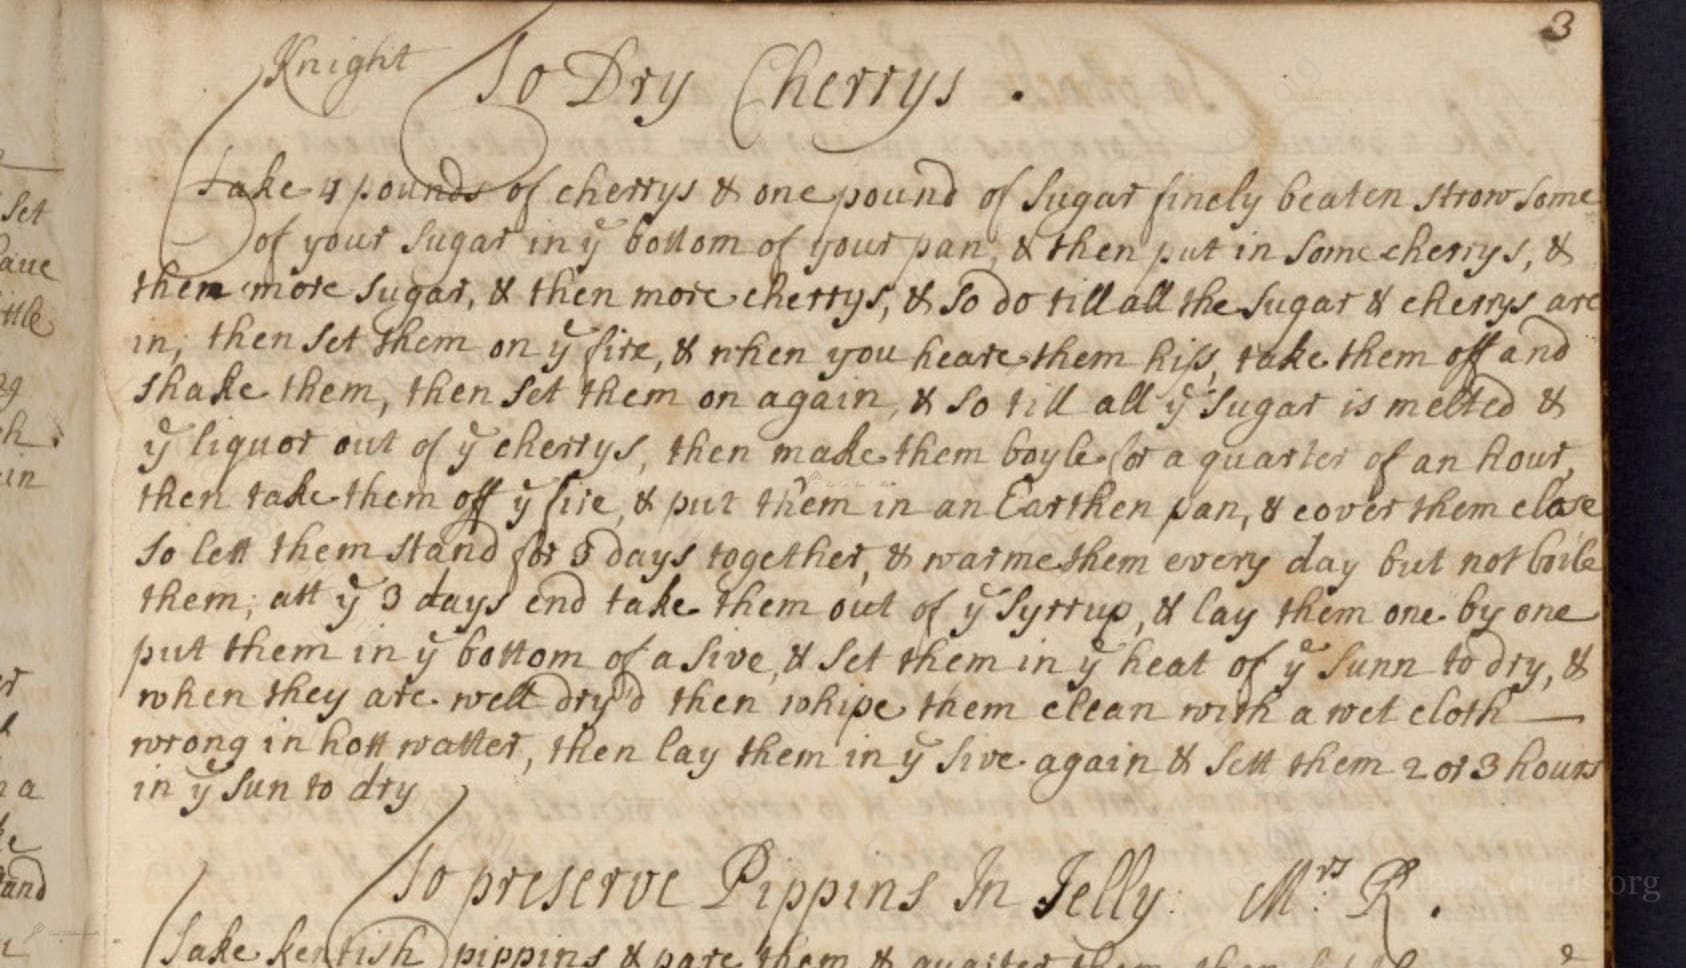 3
Knight To Dry Cherrys .
Take 4 pounds of cherrys & one pound of Sugar finely beaten strow some
of your Sugar in yͤ bottom of your pan, & then put in some cherrys, &
then more Sugar, & then more cherrys, & so do till all the Sugar & cherrys are
in; then set them on yͤ fire, & when you heare them hiss, take them off and
shake them, then set them on again, & so till all yͤ Sugar is melted &
yͤ liquor out of yͤ cherrys, then make them boyle for a quarter of an hour,
then take them off yͤ fire, & put them in an Earthen pan, & cover them close
so lett them stand for 3 days together, & warme them every day but not boile
them; att yͤ 3 days end take them out of yͤ Syrrup, & lay them one by one
put them in yͤ bottom of a sive, & set them in yͤ heat of yͤ Sunn to dry, &
when they are well dry'd then whipe them clean with a wet cloth —
wrong in hott watter, then lay them in yͤ sive again & sett them 2 or 3 hours
in yͤ sun to dry
To preserve Pippins In Jelly: Mrs R .
Take kentish pippins & pare them & quarter them then
set
ttle
h
in
a
and